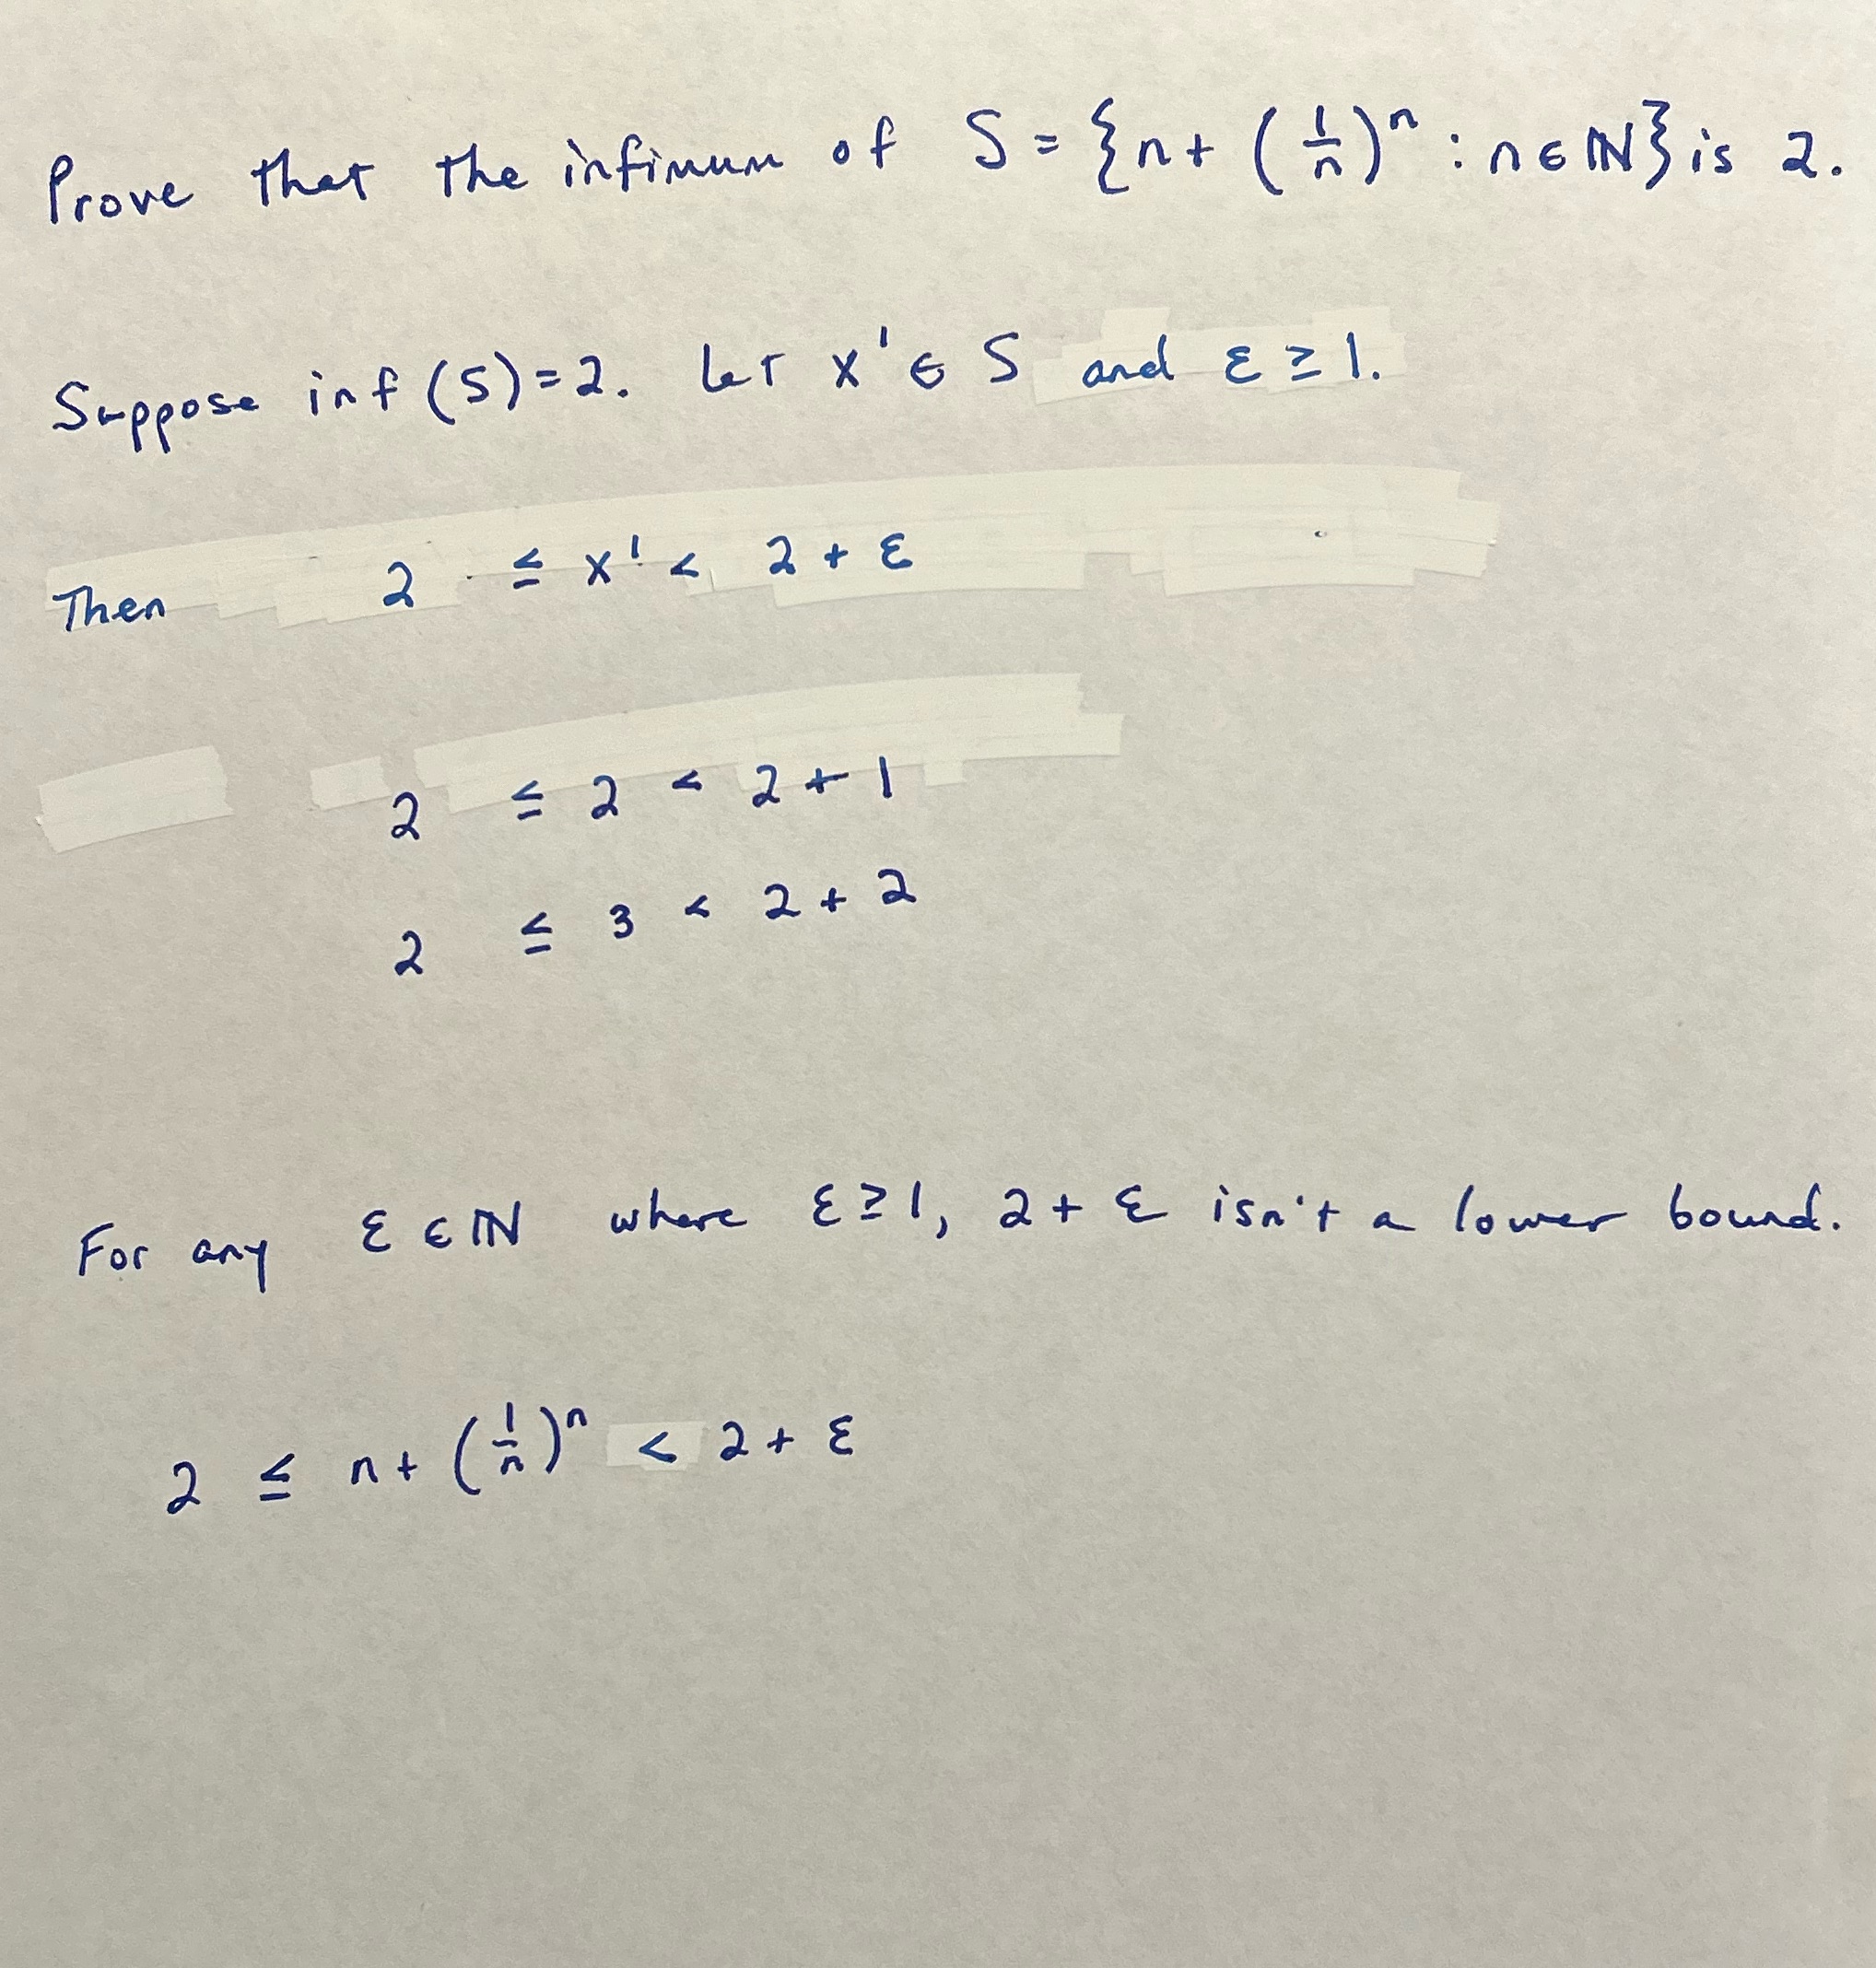 Prove that the infimum of S = {n + (1/n)ⁿ : n ∈ ℕ} is 2.
Suppose inf (S) = 2. Let x' ∈ S and ε ≥ 1.
Then 2 ≤ x' < 2 + ε
2 ≤ 2 < 2 + 1
2 ≤ 3 < 2 + 2
For any ε ∈ ℕ where ε ≥ 1, 2 + ε isn't a lower bound.
2 ≤ n + (1/n)ⁿ < 2 + ε